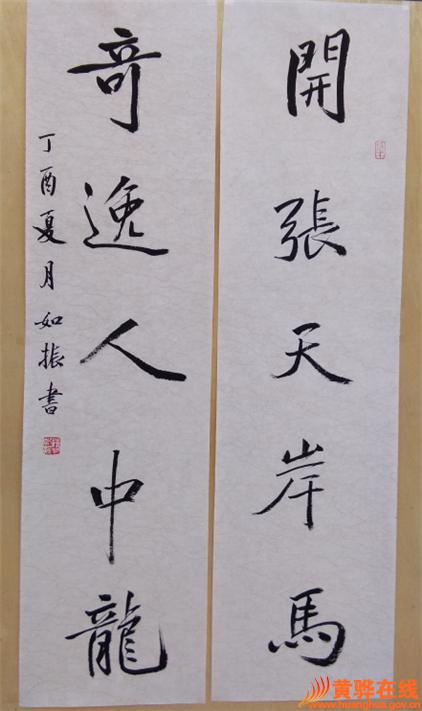 開張天岸馬
奇逸人中龍
丁酉夏月如振書
黄骅在线
www.huanghua.gov.cn